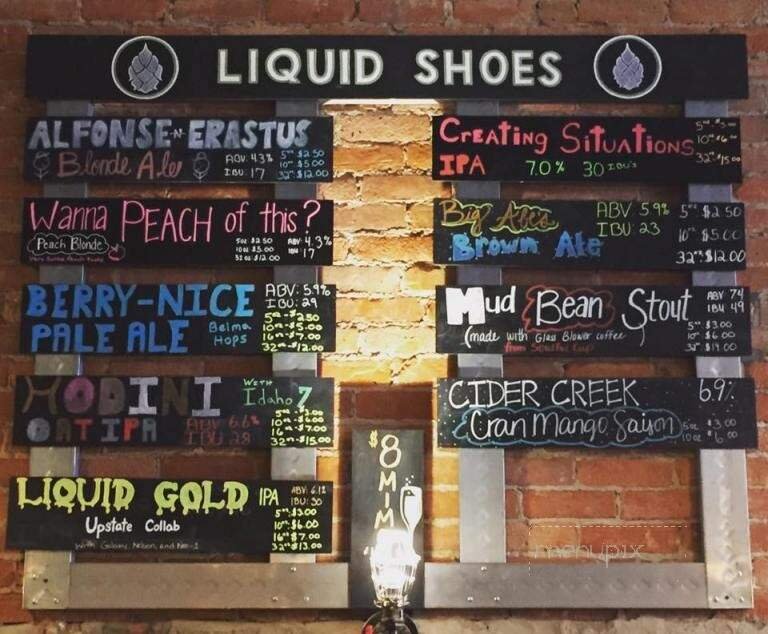 LIQUID SHOES
ALFONSE-N-ERASTUS
Blonde Ale
ABV: 4.3%
IBU: 17
5oz $2.50
10oz $5.00
32oz $12.00
Wanna PEACH of this?
Peach Blonde
5oz $2.50
10oz $5.00
32oz $12.00
ABV: 4.3%
IBU 17
BERRY-NICE
PALE ALE
Belma
Hops
ABV: 5.9%
IBU: 29
5oz-$2.50
10oz-$5.00
16oz-$7.00
32oz-$12.00
HODINI
OAT IPA
With
Idaho 7
ABV 6.6%
IBU 28
5oz-$3.00
10oz-$6.00
16oz-$7.00
32oz-$15.00
LIQUID GOLD IPA
Upstate Collab
With Galaxy, Nelson, and
IBU: 30
5oz: $3.00
10oz: $6.00
16oz $7.00
32oz $13.00
Creating Situations
IPA
7.0%
30 IBU's
32oz $15.00
Big Ale's
Brown Ale
ABV: 5.9%
IBU: 23
5oz $2.50
10oz $5.00
32oz $12.00
Mud Bean Stout
(made with Glass Blower coffee)
ABV 7.4
IBU 49
5oz $3.00
10oz $6.00
CIDER CREEK
6.9%
Cran Mango Saison
5oz $3.00
10oz $6.00
$8
MIM
menupix